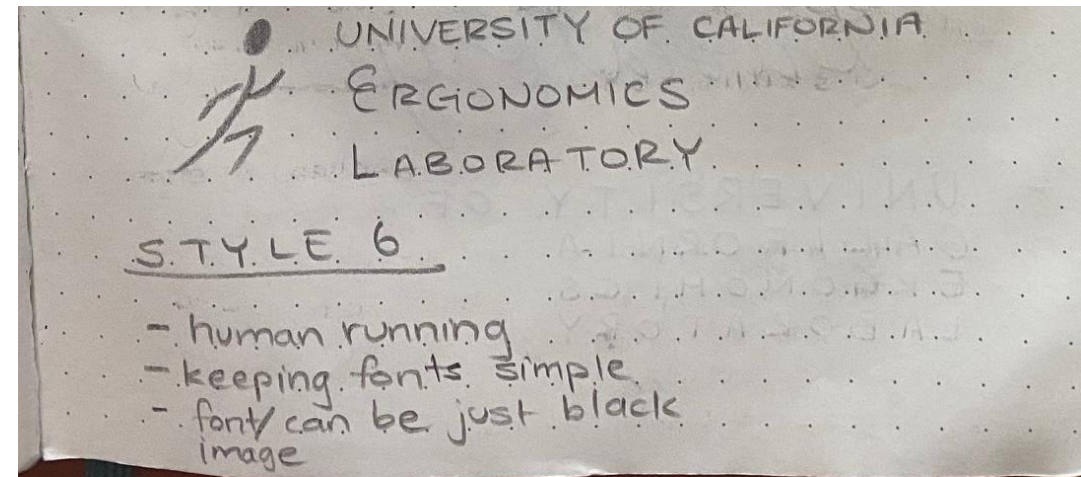 UNIVERSITY OF CALIFORNIA
ERGONOMICS
LABORATORY
STYLE 6
- human running
- keeping fonts simple
- font/ can be just black
image